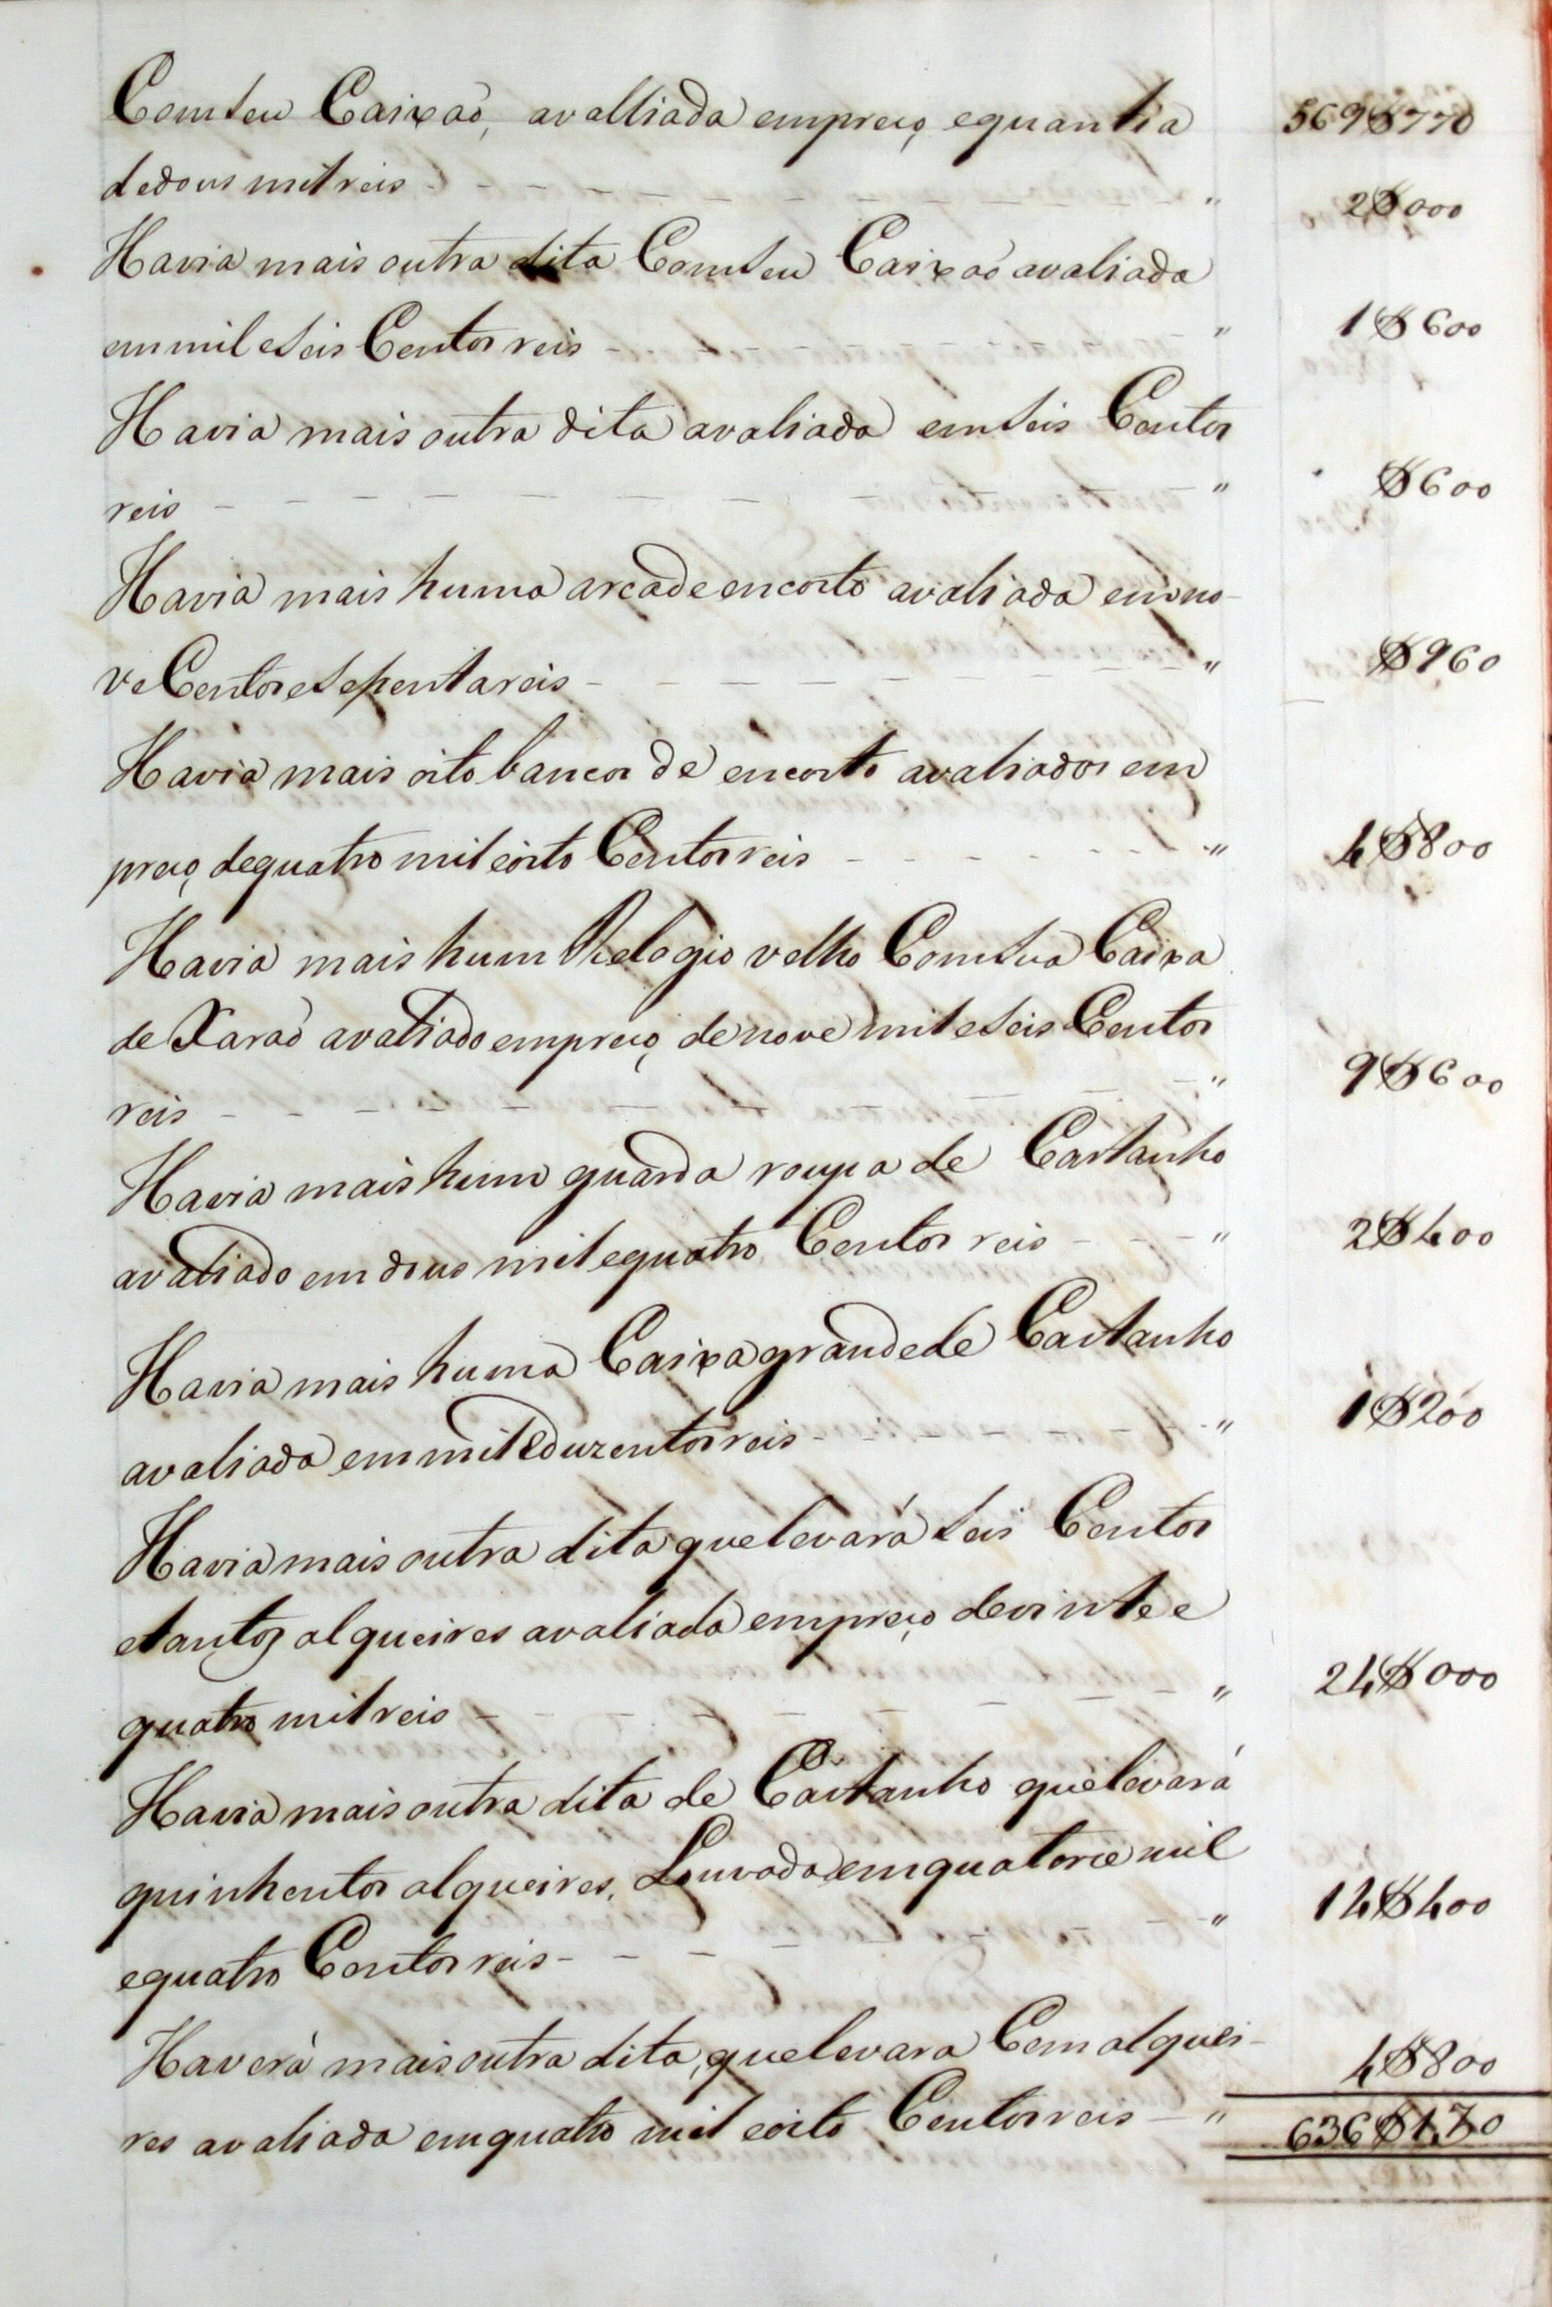 Com seu Caixaõ, avalliada em preço, e quantia 569$770
de dous mil reis - - - - - - - - - " 2$000
Havia mais outra dita Com seu Caixaõ avaliada
em mil e seis Centos reis - - - - - - " 1$600
Havia mais outra dita avaliada em seis Centos
reis - - - - - - - - - - " $600
Havia mais huma arca de encosto avaliada em no-
ve Centos e sepenta reis - - - - - - " $960
Havia mais oito bancos de encosto avaliados em
preço, de quatro mil e oito Centos reis - - - - - " 4$800
Havia mais hum Relogio velho Com sua Caixa
de Xaraõ avaliado em preço, de nove mil e seis Centos
reis - - - - - - - - - - " 9$600
Havia mais hum guarda roupa de Castanho
avaliado em dous mil e quatro Centos reis - - - " 2$400
Havia mais huma Caixa grande de Castanho
avaliada em mil e duzentos reis - - - - - " 1$200
Havia mais outra dita que levará seis Centos
e tantos alqueires avaliada em preço de vinte e
quatro mil reis - - - - - - - - " 24$000
Havia mais outra dita de Castanho que levará
quinhentos alqueires, Louvada em quatorze mil
e quatro Centos reis - - - - - - - " 14$400
Haverá mais outra dita, que levara Cem alquei-
res avaliada em quatro mil e oito Centos reis - " 4$800
636$130